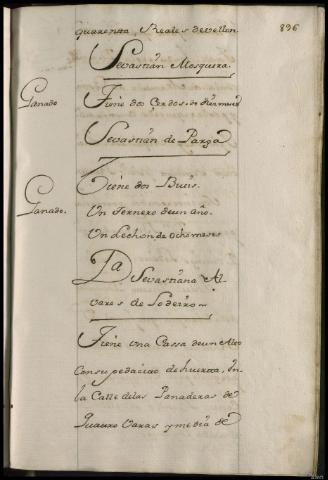 quarenta, Reales de vellon
896
Sevastian Mosquera.
Ganado
Tiene dos Cerdos de seis meses
Sevastian de Parga
Ganado.
Tiene dos Bueis.
Un Ternero de un año.
Un Lechon de ocho meses
Da Sevastiana Al-
vares de Sodeiro
Tiene una Cassa de un Alto
Con su pedacico de huerta, In
la Calle delas Panaderas de
Quatro Varas y media de